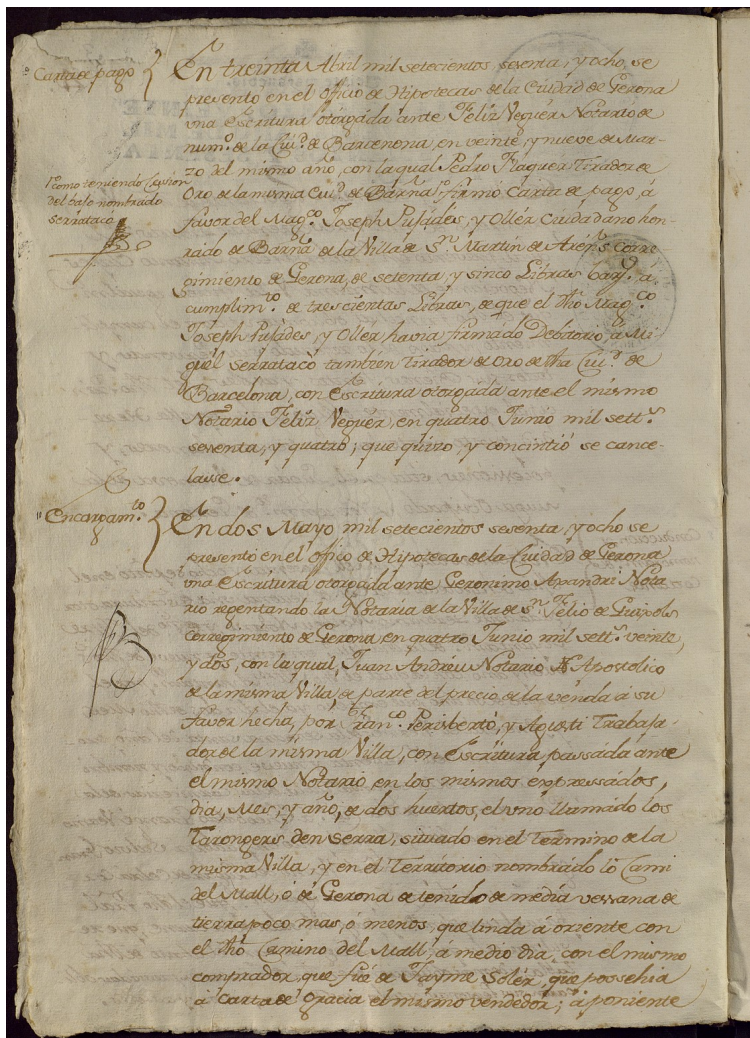 Carta de pago
En treinta Abril mil setecientos sesenta, y ocho, se
presento en el officio de Hipotecas de la Ciudad de Gerona
una Escritura otorgada ante Felix Veguer Notario de
num.º de la Ciu.d de Barcenona, en veinte, y nueve de Mar-
zo del mismo año, con la qual Pedro Flaquer Tirador de
Oro de la misma Ciu.d de Barña firmó Carta de pago á
favor del Mag.co Joseph Pujades, y Ollér Ciudadano hon-
rado de Barña de la Villa de S.n Martin de Aréñs Corre-
gimiento de Gerona, de setenta, y sinco Libras Barz.s a
cumplim.to de trescientas Libras, de que el dho Mag.co
Joseph Pujades, y Ollér havia firmado Debitorio, á Mi-
quel Serratacó tambien Tirador de Oro de dha Ciu.d de
Barcelona, con Escritura otorgada ante el mismo
Notario Felix Veguér, en quatro Junio mil sett.s
sesenta, y quatro; que quizo, y concintió se cance-
lasse.
como teniendo Cession
del bajo nombrado
Serratacó
Encargam.to
En dos Mayo mil setecientos sesenta, y ocho se
presentó en el officio de Hipotecas de la Ciudad de Gerona
una Escritura otorgada ante Geronimo Axandri Nota
rio regentando la Notaria de la Villa de S.n Felio de Guixols
corregimiento de Gerona, en quatro Junio mil sett.s veinte,
y dos, con la qual, Juan Andréu Notario Apostolico
de la misma Villa, de parte del precio de la venda á su
favor hecha, por Fran.co Perisberto, y Agusti Trabaja-
dor de la misma Villa, con Escritura passada ante
el mismo Notario en los mismos expressados,
dia, Mes, y año, de dos huertos, el uno llamado los
Tarongers den Serra, situado en el Termino de la
misma Villa, y en el Territorio nombrado lo Cami
del Mall, ó de Gerona de tenida de media vessana de
tierra poco mas, ó menos, que linda á oriente con
el dho Camino del Mall, á medio dia, con el mismo
comprador, que fue de Jayme Solér, que possehia
á Carta de gracia el mismo vendedor; á poniente